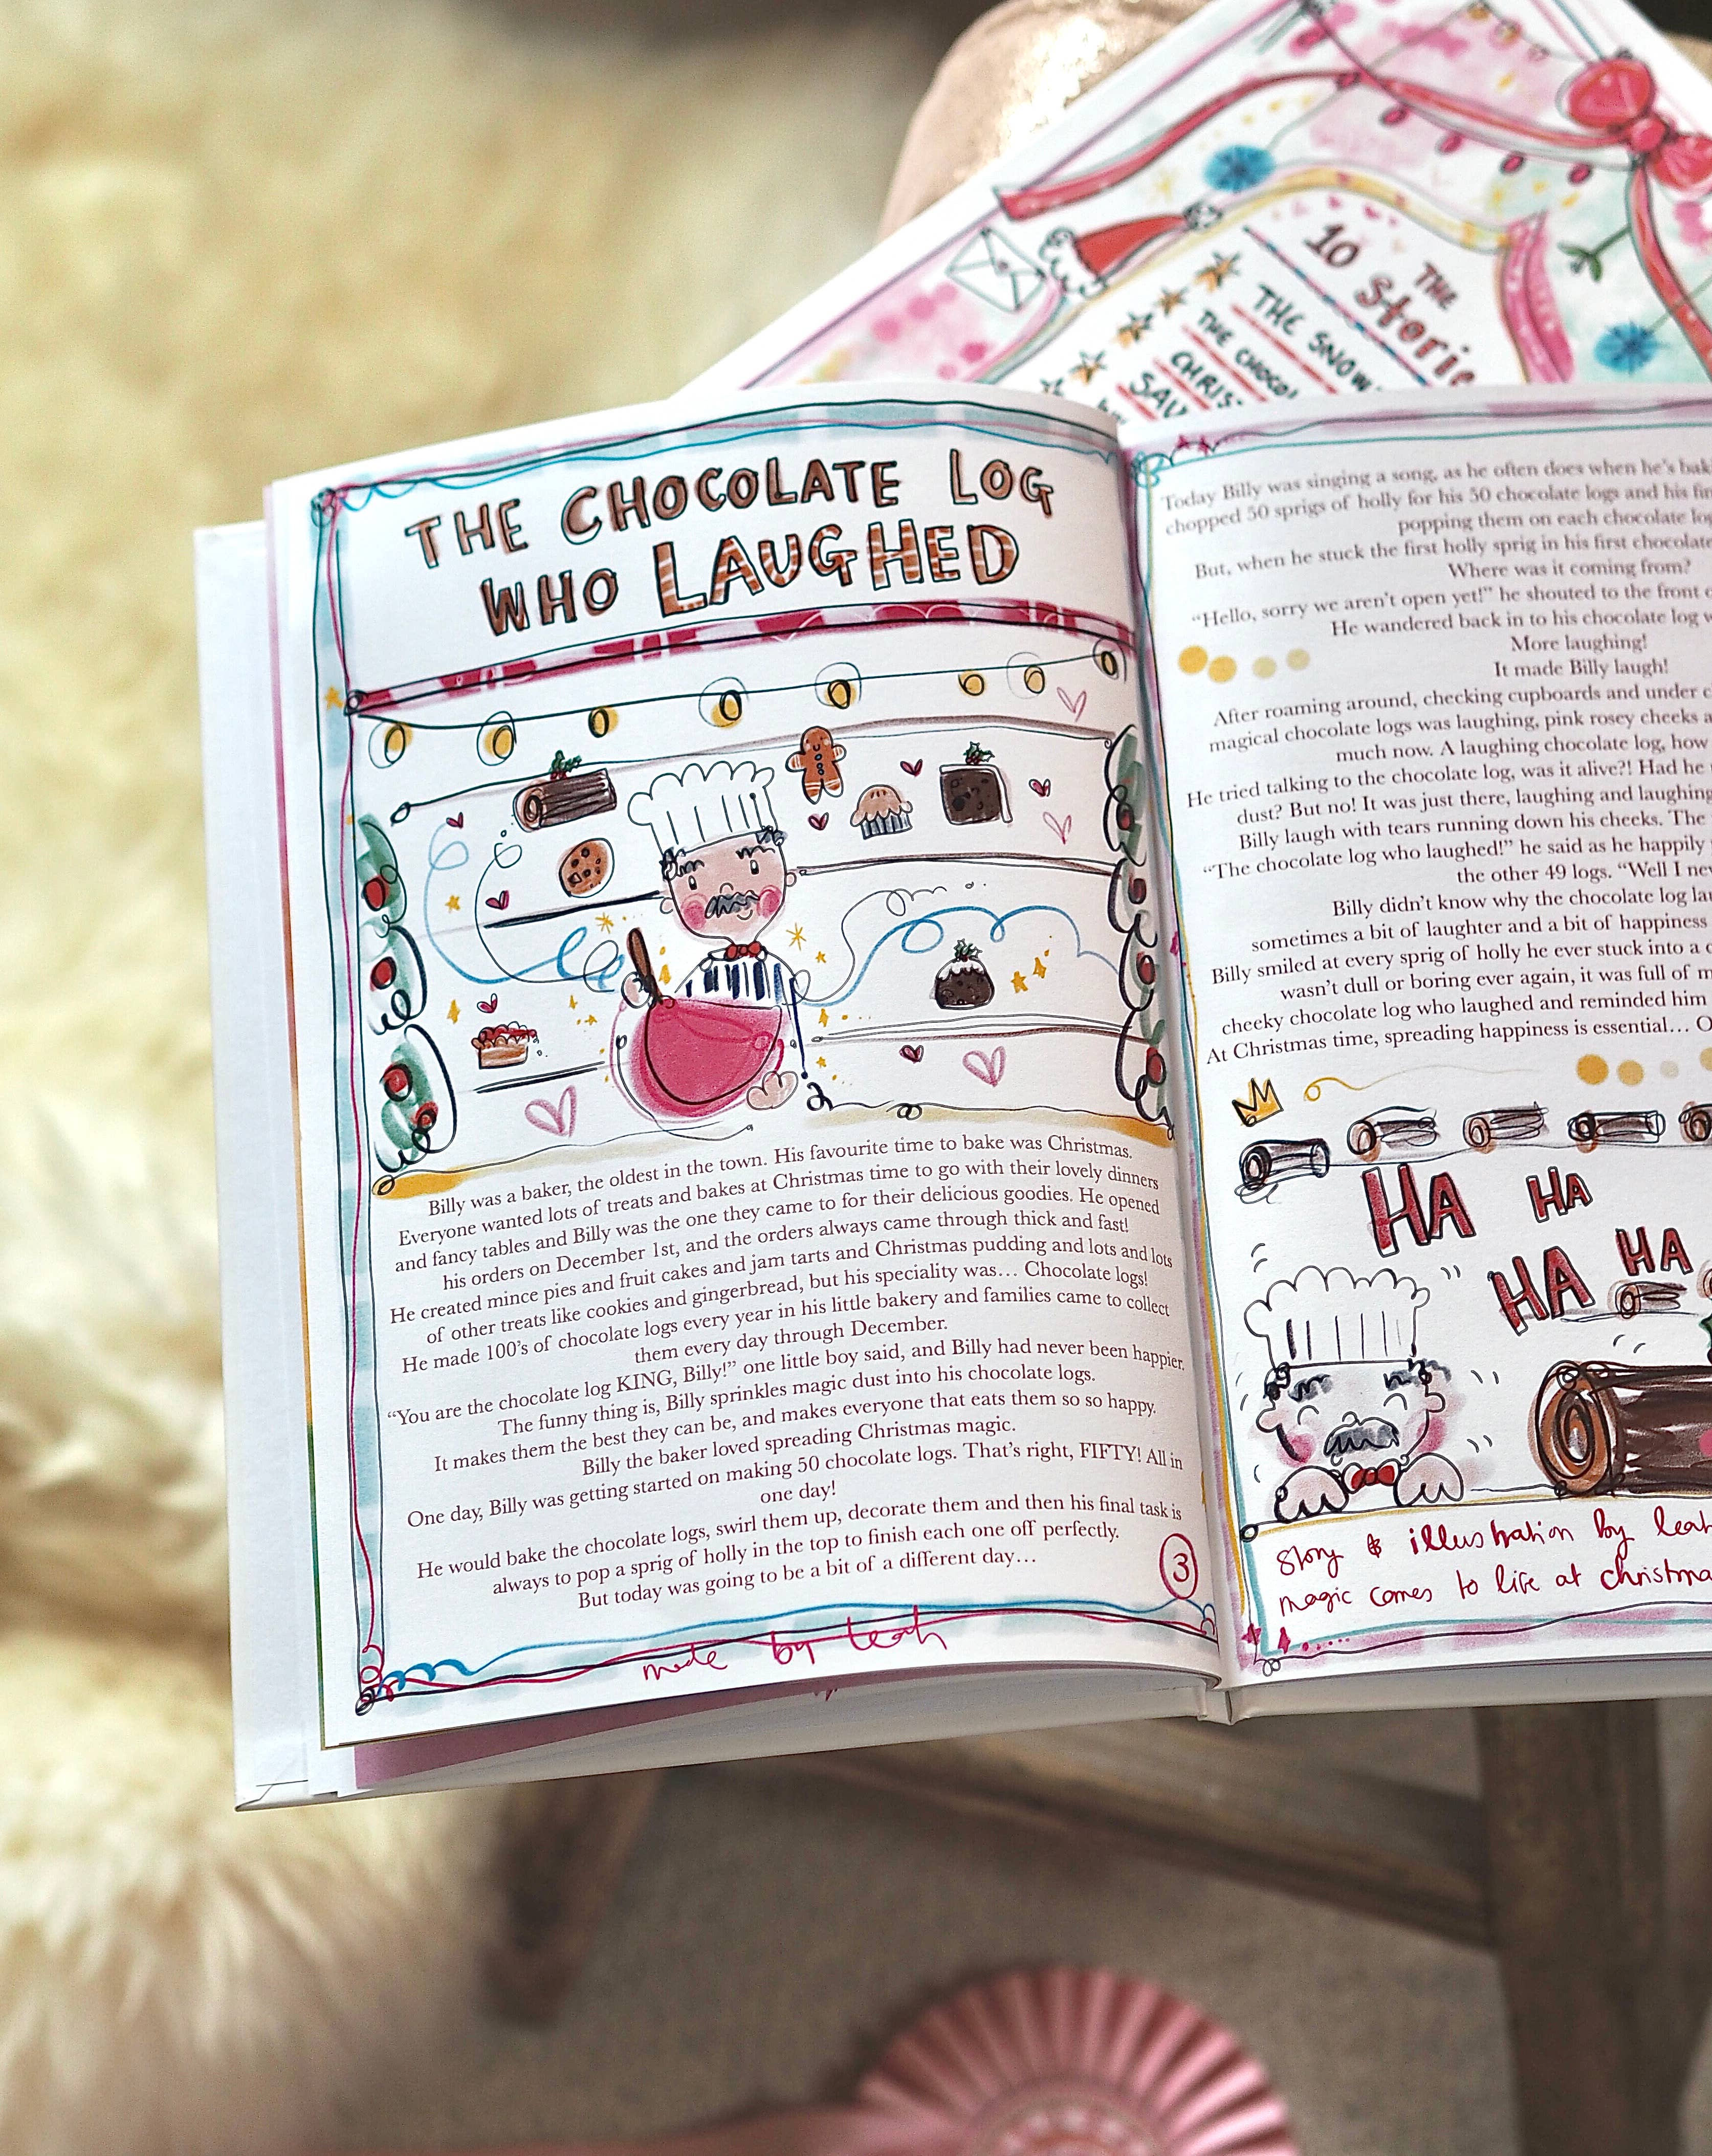 THE
10 Stories
THE SNOW
THE CHOCO
CHRIS
SAV
THE CHOCOLATE LOG
WHO LAUGHED
Billy was a baker, the oldest in the town. His favourite time to bake was Christmas.
Everyone wanted lots of treats and bakes at Christmas time to go with their lovely dinners
and fancy tables and Billy was the one they came to for their delicious goodies. He opened
his orders on December 1st, and the orders always came through thick and fast!
He created mince pies and fruit cakes and jam tarts and Christmas pudding and lots and lots
of other treats like cookies and gingerbread, but his speciality was… Chocolate logs!
He made 100's of chocolate logs every year in his little bakery and families came to collect
them every day through December.
“You are the chocolate log KING, Billy!” one little boy said, and Billy had never been happier.
The funny thing is, Billy sprinkles magic dust into his chocolate logs.
It makes them the best they can be, and makes everyone that eats them so so happy.
Billy the baker loved spreading Christmas magic.
One day, Billy was getting started on making 50 chocolate logs. That's right, FIFTY! All in
one day!
He would bake the chocolate logs, swirl them up, decorate them and then his final task is
always to pop a sprig of holly in the top to finish each one off perfectly.
But today was going to be a bit of a different day…
3
made by leah
Today Billy was singing a song, as he often does when he's bak
chopped 50 sprigs of holly for his 50 chocolate logs and his fin
popping them on each chocolate log
But, when he stuck the first holly sprig in his first chocolate
Where was it coming from?
“Hello, sorry we aren't open yet!” he shouted to the front
He wandered back in to his chocolate log
More laughing!
It made Billy laugh!
After roaming around, checking cupboards and under
magical chocolate logs was laughing, pink rosey cheeks
much now. A laughing chocolate log, how
He tried talking to the chocolate log, was it alive?! Had he
dust? But no! It was just there, laughing and laughing
Billy laugh with tears running down his cheeks. The
“The chocolate log who laughed!” he said as he happily
the other 49 logs. “Well I nev
Billy didn't know why the chocolate log lau
sometimes a bit of laughter and a bit of happiness
Billy smiled at every sprig of holly he ever stuck into a
wasn't dull or boring ever again, it was full of m
cheeky chocolate log who laughed and reminded him
At Christmas time, spreading happiness is essential… O
HA HA
HA HA
Story & illustration by leah
magic comes to life at christma